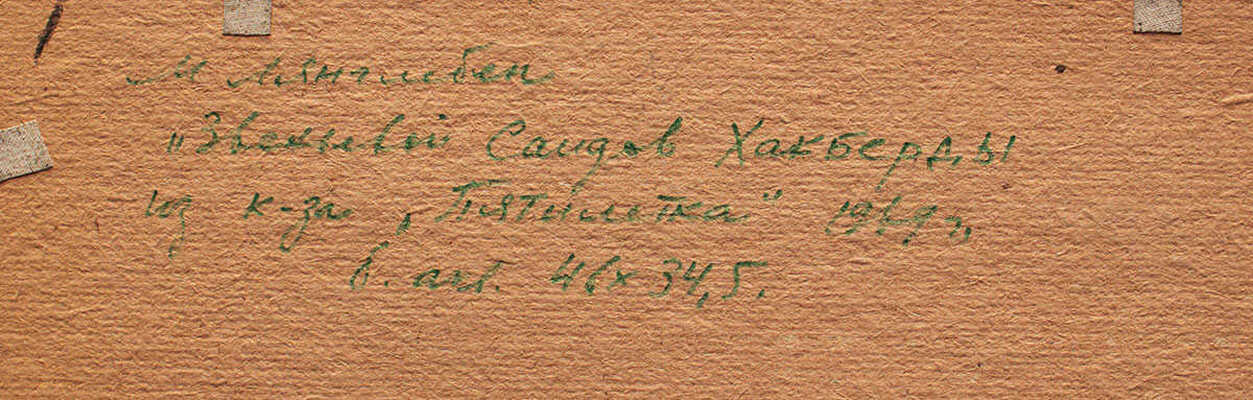 М Лянглибен
„Звеньевой Саидов Хакберды
из к-за „Пятилетка" 1969г,
б. акв. 46х34,5.